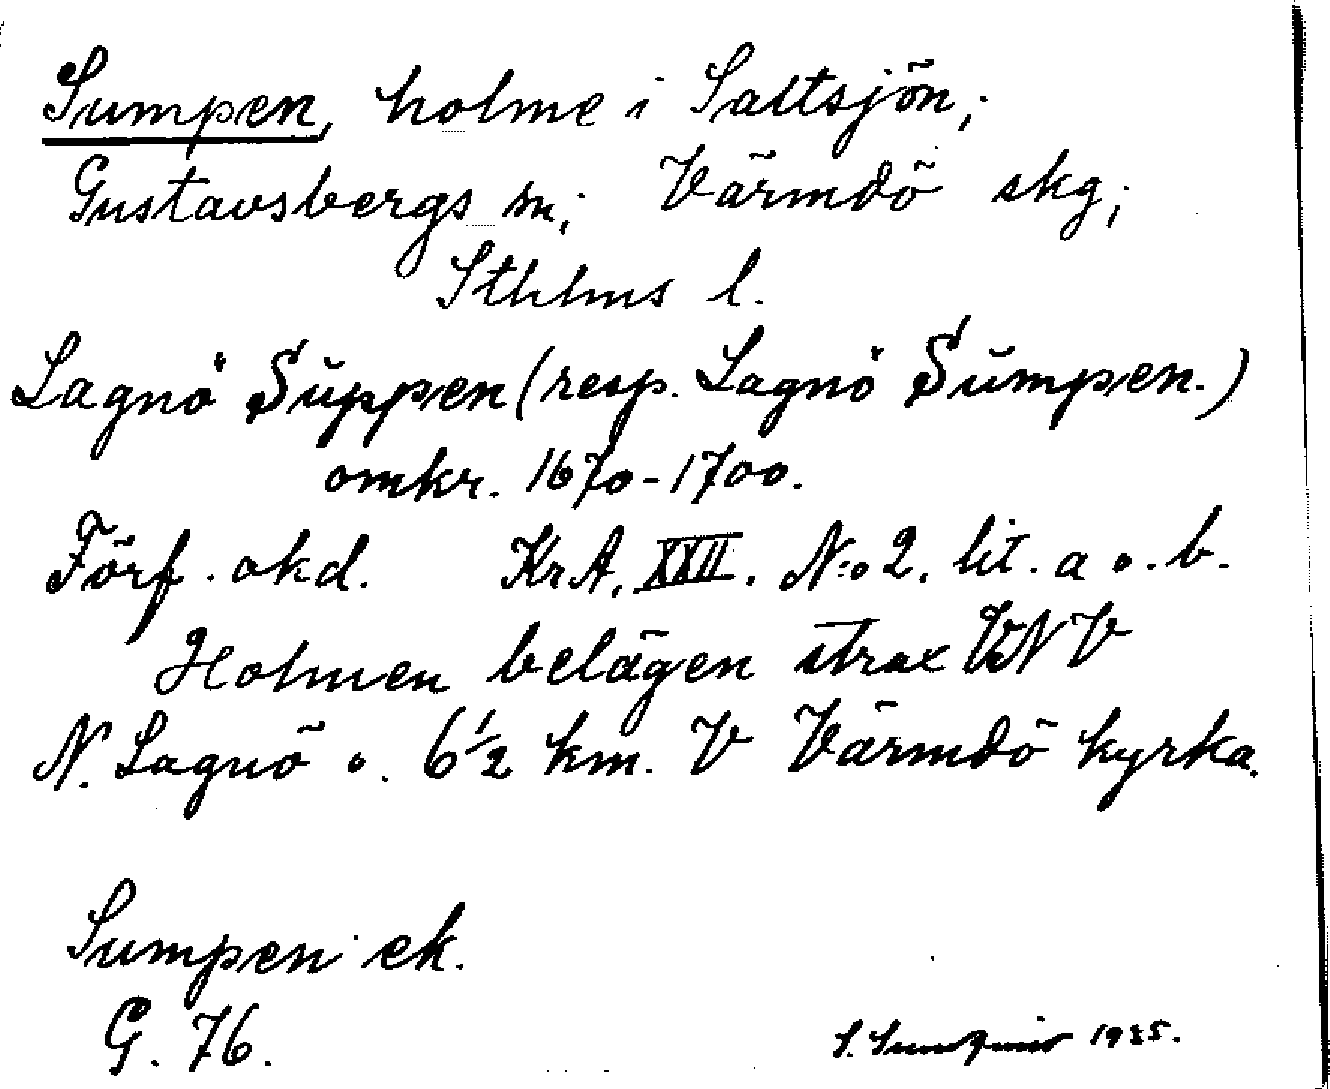 Sumpen, holme i Saltsjön;
Gustavsbergs sn; Värmdö skg;
Sthlms l.
Lagnö Suppen (resp. Lagnö Sumpen.)
omkr. 1670-1700.
Förf. okd. KrA. XXII. N:o 2. lit. a o. b.
Holmen belägen strax VNV
N. Lagnö o. 6 1/2 km. V Värmdö kyrka.
Sumpen ek.
G. 76.
S. 1935.